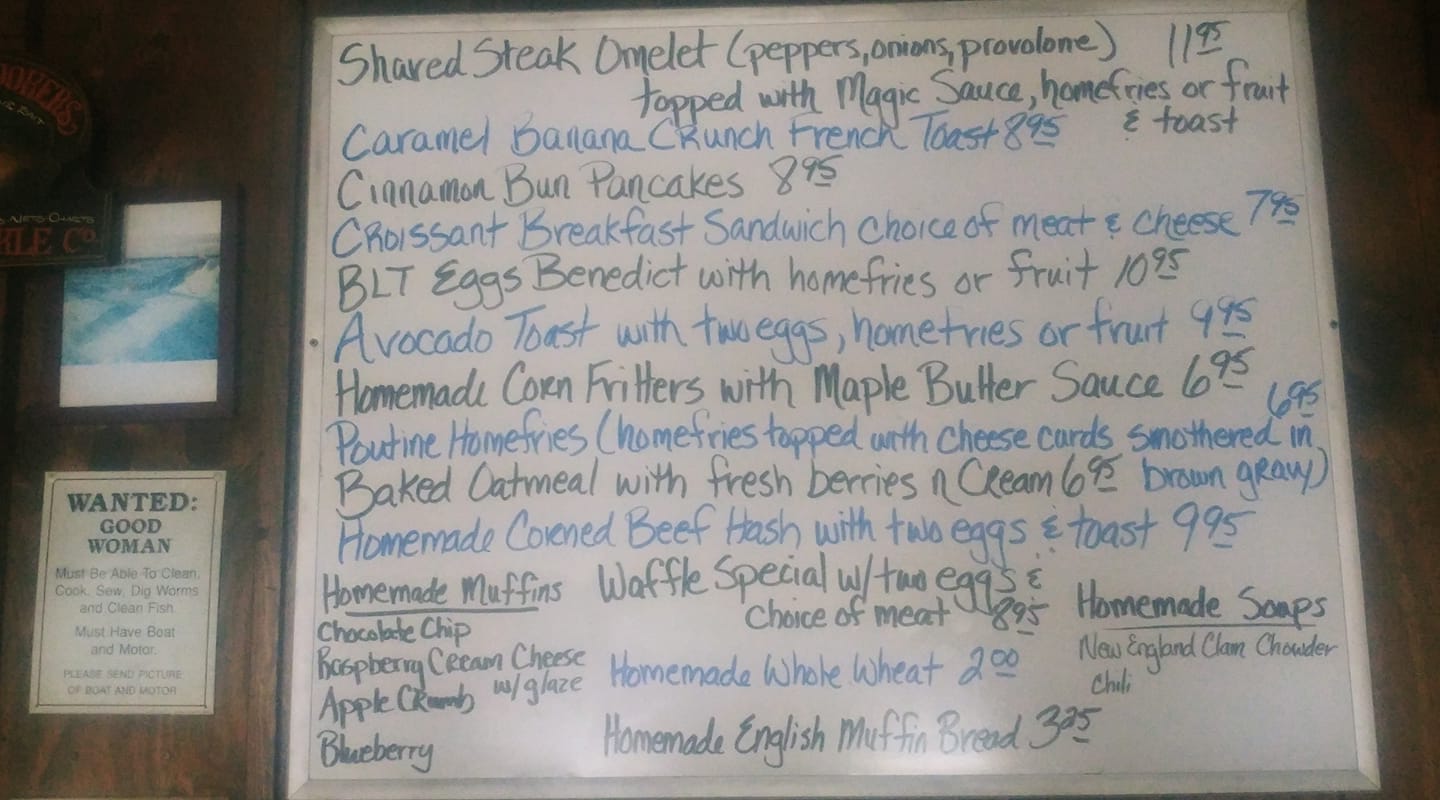 Shaved Steak Omelet (peppers, onions, provolone) 11 95
topped with Magic Sauce, homefries or fruit
& toast
Caramel Banana Crunch French Toast 8 95
Cinnamon Bun Pancakes 8 95
Croissant Breakfast Sandwich choice of meat & cheese 7 95
BLT Eggs Benedict with homefries or fruit 10 95
Avocado Toast with two eggs, homefries or fruit 9 95
Homemade Corn Fritters with Maple Butter Sauce 6 95
Poutine Homefries (homefries topped with cheese curds smothered in 6 95
brown gravy)
Baked Oatmeal with fresh berries n Cream 6 95
Homemade Corned Beef Hash with two eggs & toast 9 95
Homemade Muffins
Chocolate Chip
Raspberry Cream Cheese
w/ glaze
Apple Crumb
Blueberry
Waffle Special w/ two eggs &
choice of meat 8 95
Homemade Whole Wheat 2 00
Homemade English Muffin Bread 3 25
Homemade Soups
New England Clam Chowder
Chili
WANTED:
GOOD
WOMAN
Must Be Able To Clean,
Cook, Sew, Dig Worms
and Clean Fish.
Must Have Boat
and Motor.
PLEASE SEND PICTURE
OF BOAT AND MOTOR